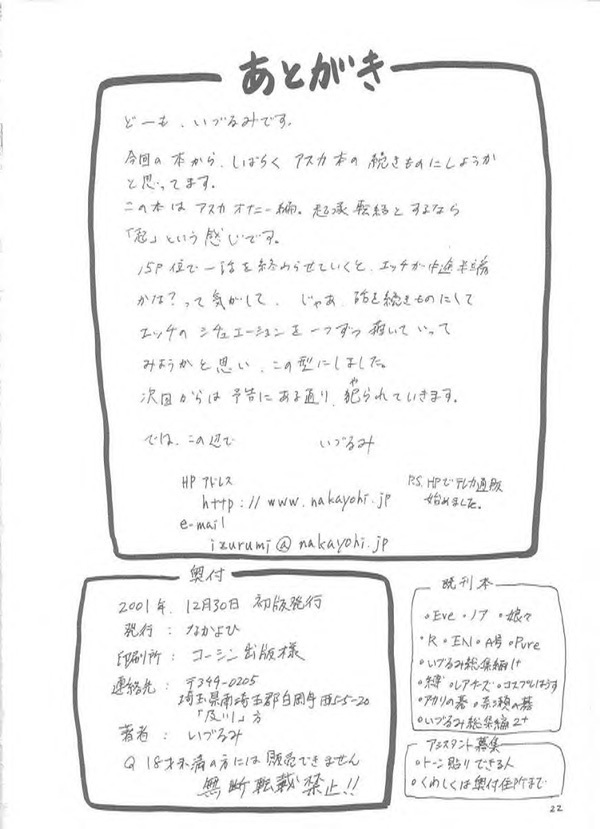 あとがき
どーも、いづるみです。
今回の本から、しばらく アスカ本の 続きものにしようか
と思ってます。
この本は アスカオナニー編。起承転結とするなら
「起」という感じです。
15P位で一話を終わらせていくと、エッチが中途半端
かな？って気がして、じゃあ、話を続きものにして
エッチのシチュエーションを一つずつ描いていって
みようかと思い、この型にしました。
次回からは予告にある通り、犯られていきます。
や
では、この辺で いづるみ
HPアドレス
http://www.nakayohi.jp
e-mail
izurumi@nakayohi.jp
P.S. HPでテレカ通販
始めました。
奥付
2001年、12月30日 初版発行
発行：なかよひ
印刷所：コーシン出版様
連絡先：〒349-0205
埼玉県南埼玉郡白岡町西5-5-20
「及川」方
著者：いづるみ
18才未満の方には販売できません
無断転載禁止!!
既刊本
◦Eve ◦ノア ◦娘で
◦R ◦EN ◦A号 ◦Pure
◦いづるみ総集編1+
◦縛 ◦レアナーズ ◦コスプレはうす
◦アカリの暮 ◦奈々瀬の暮
◦いづるみ総集編2+
アシスタント募集
◦トーン貼りできる人
◦くわしくは奥付住所まで
22